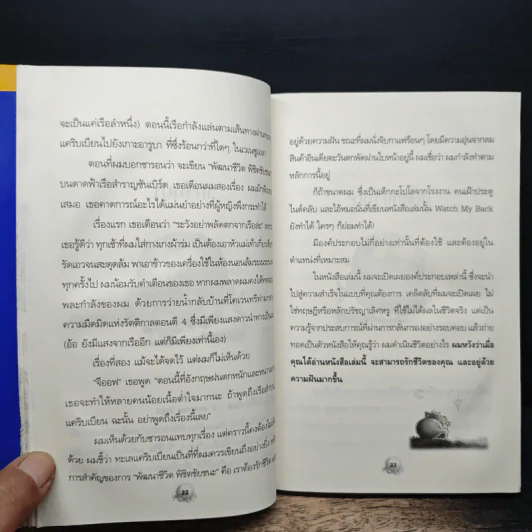 จะเป็นแค่เรือลำหนึ่ง) ตอนนี้เรือกำลังแล่นตามเส้นทางผ่านทะเล
แคริบเบียนไปยังเกาะอารูบา ที่ซึ่งร้อนกว่าที่ใดๆ ในเวเนซูเอลา
ตอนที่ผมบอกชารอนว่า จะเขียน "พัฒนาชีวิต พิชิตชัยชนะ"
บนดาดฟ้าเรือสำราญซันเบิร์ด เธอเตือนผมสองเรื่อง ผมมักฟัง
เสมอ เธอคาดการณ์อะไรได้แม่นยำอย่างที่ผู้หญิงพึงกระทำได้
เรื่องแรก เธอเตือนว่า "ระวังอย่าพลัดตกจากเรือล่ะ"
เธอรู้ดีว่า ทุกเช้าที่ผมใส่กางเกงผ้าร่ม เป็นต้องเอาหัวแม่เท้าเกี่ยว
รัดเอวจนสะดุดล้ม พาเอาข้าวของเครื่องใช้ในห้องนอนล้มระเนระนาด
ทุกครั้งไป ผมน้อมรับคำเตือนของเธอ หากผมพลาดผมคงได้
พละกำลังของผม ด้วยการว่ายน้ำกลับบ้านที่โคเวนทรีท่ามกลาง
ความมืดมิดแห่งรัตติกาลตอนตี 4 ซึ่งมีเพียงแสงดาวนำทาง
(อ้อ ยังมีแสงจากเรืออีก แต่ก็มีเพียงเท่านี้เอง)
เรื่องที่สอง แม้จะได้จดไว้ แต่ผมก็ไม่เห็นด้วย
"จีออฟ" เธอพูด "ตอนนี้ที่อังกฤษฝนตกหนักและหนาว
เธอจะทำให้หลายคนน้อยเนื้อต่ำใจมากนะ ถ้าพูดถึงเรือสำราญ
แคริบเบียน ฉะนั้น อย่าพูดถึงเรื่องนี้เลย"
ผมเห็นด้วยกับชารอนแทบทุกเรื่อง แต่คราวนี้คงต้อง
ด้วย ผมชี้ว่า ทะเลแคริบเบียนเป็นที่ที่ผมควรเขียนถึงอย่างยิ่ง
การสำคัญของการ "พัฒนาชีวิต พิชิตชัยชนะ" คือ เราต้องรักชีวิต
22
อยู่ด้วยความฝัน ขณะที่ผมนั่งจิบกาแฟร้อนๆ โดยมีความอุ่นจากลม
สินค้าอินเดียตะวันตกพัดผ่านใบหน้าอยู่นี้ ผมเชื่อว่า ผมกำลังทำตาม
หลักการนี้อยู่
ก็ถ้าขนาดผม ซึ่งเป็นเด็กกะโปโลจากโรงงาน คนเฝ้าประตู
ไนต์คลับ และไอ้หมอนั่นที่เขียนหนังสือเล่มนั้น Watch My Back
ยังทำได้ ใครๆ ก็ย่อมทำได้!
มีองค์ประกอบไม่กี่อย่างเท่านั้นที่ต้องใช้ และต้องอยู่ใน
ตำแหน่งที่เหมาะสม
ในหนังสือเล่มนี้ ผมจะเปิดเผยองค์ประกอบเหล่านี้ ซึ่งจะนำ
ไปสู่ความสำเร็จในแบบที่คุณต้องการ เคล็ดลับที่ผมจะเปิดเผย ไม่
ใช่ทฤษฎีหรือหลักปรัชญาเลิศหรู ที่ใช้ไม่ได้ผลในชีวิตจริง แต่เป็น
ความรู้จากประสบการณ์ที่ผ่านการกลั่นกรองอย่างรอบคอบ แล้วถ่าย
ทอดเป็นตัวหนังสือให้คุณรู้ว่า ผมดำเนินชีวิตอย่างไร ผมหวังว่าเมื่อ
คุณได้อ่านหนังสือเล่มนี้ จะสามารถรักชีวิตของคุณ และอยู่ด้วย
ความฝันมากขึ้น
23